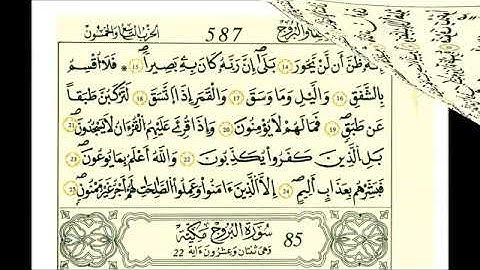 البروج 587 الحزب التاسع والخمسون
إِنَّهُۥ ظَنَّ أَن لَّنْ يَّحُورَ 14 بَلَىٰٓ إِنَّ رَبَّهُۥ كَانَ بِهِۦ بَصِيرًا 15 * فَلَآ أُقْسِمُ
بِالشَّفَقِ 16 وَالَّيْلِ وَمَا وَسَقَ 17 وَالْقَمَرِ إِذَا اَتَّسَقَ 18 لَتَرْكَبُنَّ طَبَقًا
عَن طَبَقٍ 19 فَمَا لَهُمْ لَا يُؤْمِنُونَ 20 وَإِذَا قُرِئَ عَلَيْهِمُ الْقُرْءَانُ لَا يَسْجُدُونَ 21
بَلِ الَّذِينَ كَفَرُواْ يُكَذِّبُونَ 22 وَاللَّهُ أَعْلَمُ بِمَا يُوعُونَ 23
فَبَشِّرْهُم بِعَذَابٍ أَلِيمٍ 24 إِلَّا الَّذِينَ ءَامَنُواْ وَعَمِلُواْ الصَّٰلِحَٰتِ لَهُمْ أَجْرٌ غَيْرُ مَمْنُونٍ 25
85 سُورَةُ الْبُرُوجِ مَكِّيَّة
وَهِيَ ثِنْتَانِ وَعِشْرُونَ ءَايَة 22